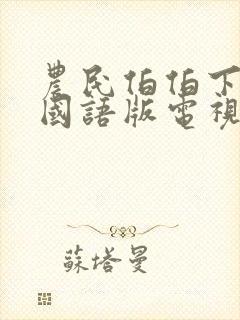 農民伯伯下
國語版電視
蘇塔曼